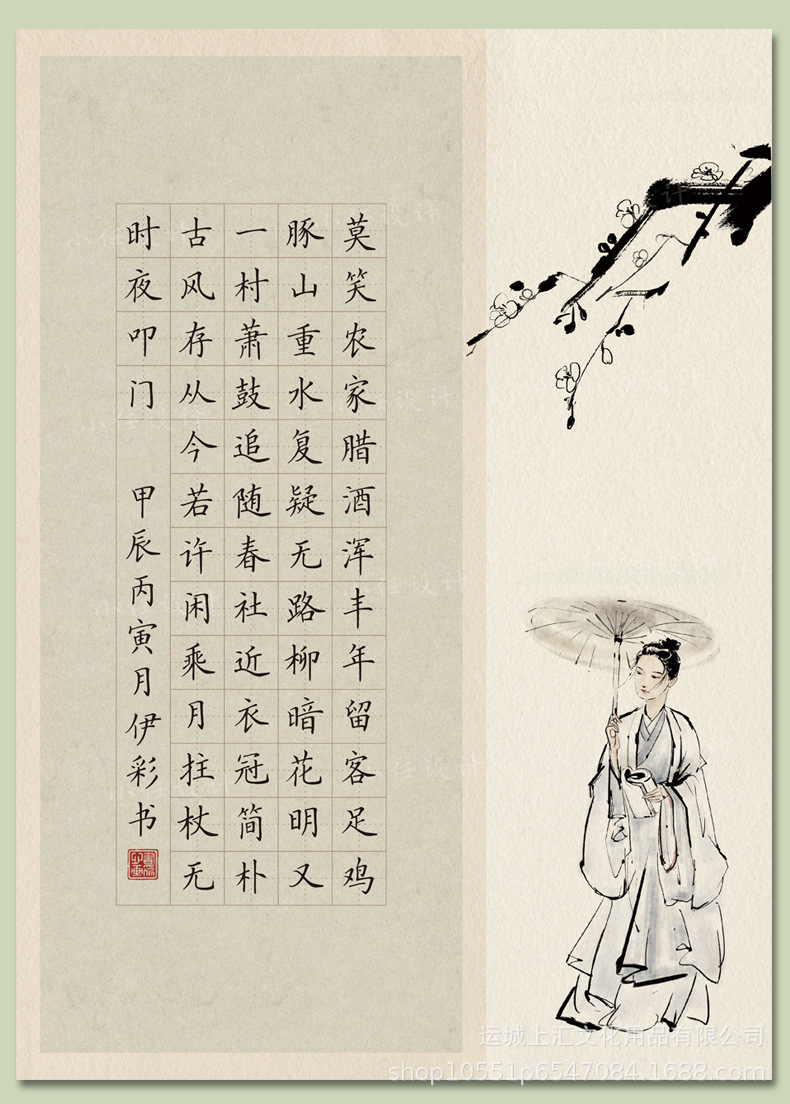 莫笑农家腊酒浑丰年留客足鸡
豚山重水复疑无路柳暗花明又
一村萧鼓追随春社近衣冠简朴
古风存从今若许闲乘月拄杖无
时夜叩门
甲辰丙寅月伊彩书
运城上汇文化用品有限公司
shop10551p6547084.1688.com